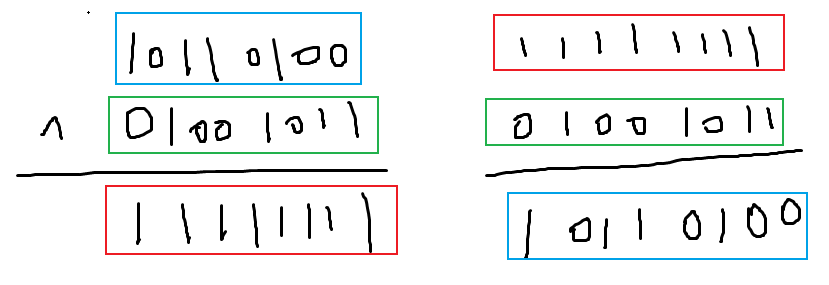 10110100
^ 01001011
11111111
11111111
01001011
10110100